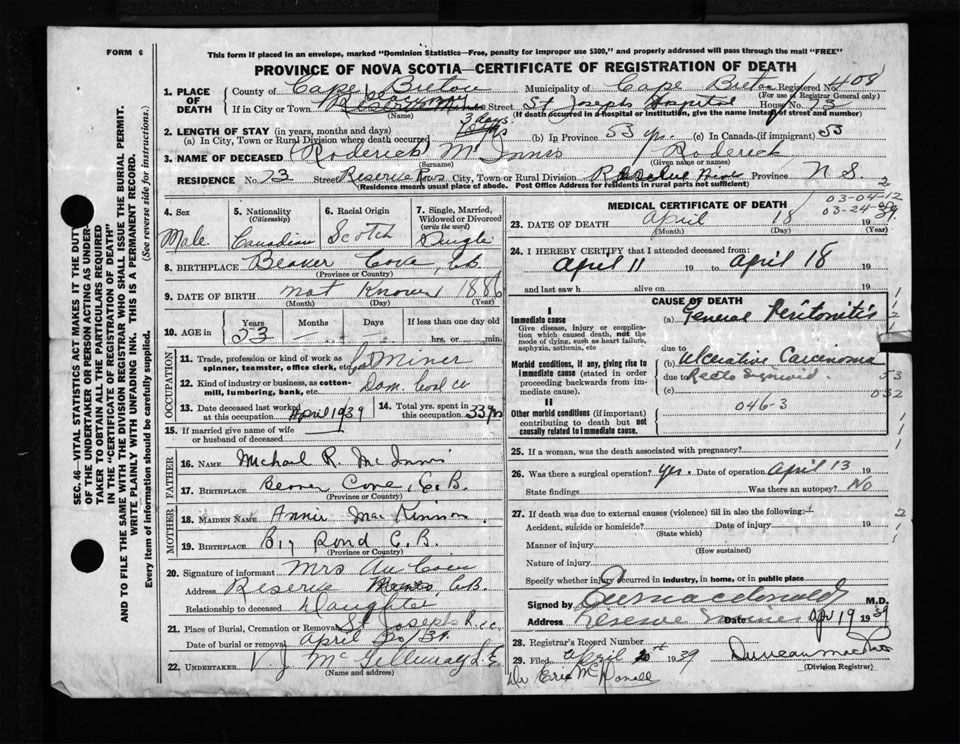 FORM 6
This form if placed in an envelope, marked "Dominion Statistics—Free, penalty for improper use $300," and properly addressed will pass through the mail "FREE"
PROVINCE OF NOVA SCOTIA—CERTIFICATE OF REGISTRATION OF DEATH
SEC. 46— VITAL STATISTICS ACT MAKES IT THE DUTY
OF THE UNDERTAKER OR PERSON ACTING AS UNDER-
TAKER TO OBTAIN ALL THE PARTICULARS REQUIRED
IN THE "CERTIFICATE OF REGISTRATION OF DEATH"
AND TO FILE THE SAME WITH THE DIVISION REGISTRAR WHO SHALL ISSUE THE BURIAL PERMIT.
WRITE PLAINLY WITH UNFADING INK. THIS IS A PERMANENT RECORD.
Every item of information should be carefully supplied. (See reverse side for instructions.)
1. PLACE OF DEATH County of Cape Breton Municipality of Cape Breton Registered No. 408
(For use of Registrar General only)
If in City or Town Reserve Mines Street St Josephs Hospital House No. 73
(Name) (If death occurred in a hospital or institution, give the name instead of street and number)
3 days
2. LENGTH OF STAY (in years, months and days)
(a) In City, Town or Rural Division where death occurred (b) In Province 53 yrs. (c) In Canada (if immigrant) 53
3. NAME OF DECEASED (Roderick) McInnis Roderick
(Surname) (Given name or names)
RESIDENCE No. 73 Street Reserve Rows City, Town or Rural Division Reserve Mines Province N S.
(Residence means usual place of abode. Post Office Address for residents in rural parts not sufficient)
4. Sex Male
5. Nationality (Citizenship) Canadian
6. Racial Origin Scotch
7. Single, Married, Widowed or Divorced (write the word) Single
8. BIRTHPLACE Beaver Cove, CB
(Province or Country)
9. DATE OF BIRTH not Known 1886
(Month) (Day) (Year)
10. AGE in Years Months Days If less than one day old
53 hrs. or min.
OCCUPATION
11. Trade, profession or kind of work as spinner, teamster, office clerk, etc. Miner
12. Kind of industry or business, as cotton-mill, lumbering, bank, etc. Dom. Coal Co
13. Date deceased last worked at this occupation April 1939 14. Total yrs. spent in this occupation 33 yrs
15. If married give name of wife or husband of deceased
FATHER
16. NAME Michael R. McInnis
17. BIRTHPLACE Beaver Cove, C.B.
(Province or Country)
MOTHER
18. MAIDEN NAME Annie MacKinnon.
19. BIRTHPLACE Big Pond C.B.
(Province or Country)
20. Signature of informant Mrs Au Coin
Address Reserve Mines, CB.
Relationship to deceased Daughter
21. Place of Burial, Cremation or Removal St Josephs R.CC
Date of burial or removal April 20/39.
22. UNDERTAKER V. J. McGillivray
(Name and address)
MEDICAL CERTIFICATE OF DEATH
03-04-12
03-24-
2
23. DATE OF DEATH April 18 39.
(Month) (Day) (Year)
24. I HEREBY CERTIFY that I attended deceased from:
April 11 19 to April 18 19
and last saw h alive on 19
CAUSE OF DEATH
I
Immediate cause (a) General Peritonitis
Give disease, injury or complication which caused death, not the mode of dying, such as heart failure, asphyxia, asthenia, etc
due to
Morbid conditions, if any, giving rise to immediate cause (stated in order proceeding backwards from immediate cause) (b) Ulcerative Carcinoma
due to Recto Sigmoid. 53
(c) 052
II
046-3
Other morbid conditions (if important) contributing to death but not causally related to immediate cause.
25. If a woman, was the death associated with pregnancy?
26. Was there a surgical operation? Yes. Date of operation April 13 19
State findings Was there an autopsy? No
27. If death was due to external causes (violence) fill in also the following:—
Accident, suicide or homicide? Date of injury 19
(State which)
Manner of injury
(How sustained)
Nature of injury
Specify whether injury occurred in industry, in home, or in public place
Signed by Macdonald M.D.
Address Reserve Mines Date Apr 19 1939
28. Registrar's Record Number
29. Filed April 20th 1939 Duncan
(Division Registrar)
Dr Eric McDonald